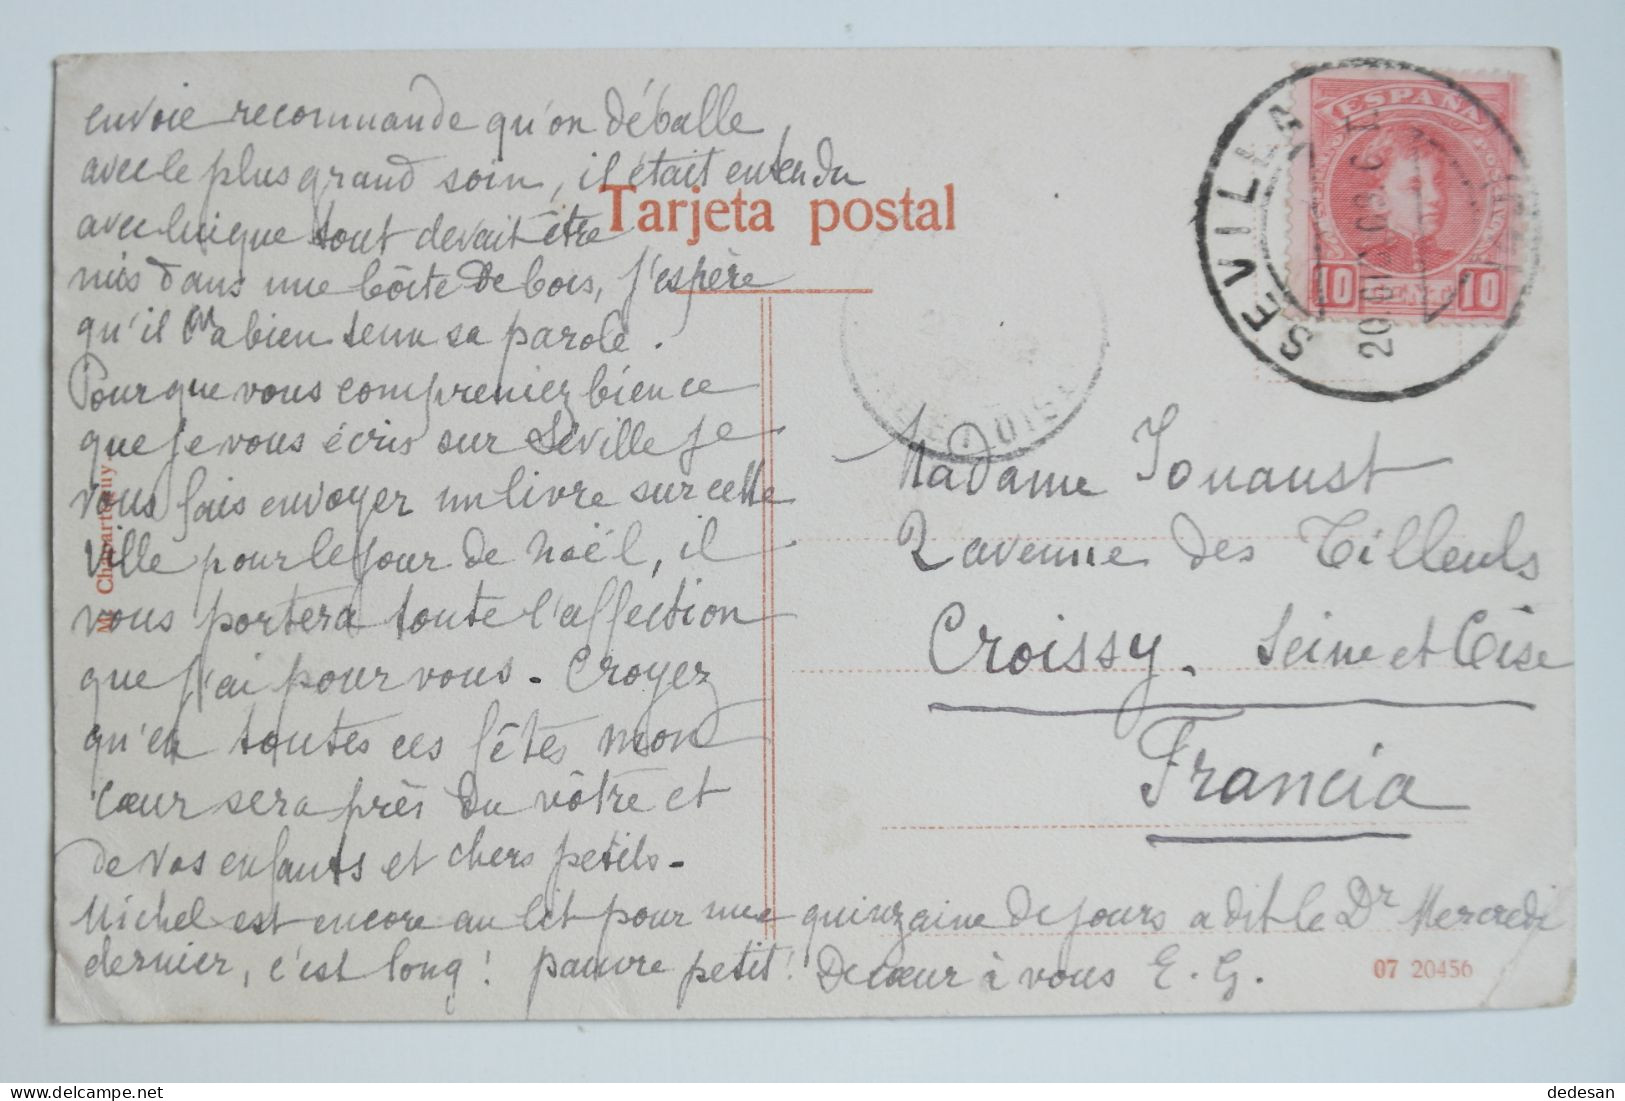 envoie recommande qu'on déballe
avec le plus grand soin, il était entendu
avec lui que tout devait être
mis dans une bôite de bois, j'espère
qu'il a bien tenu sa parole.
Pour que vous compreniez bien ce
que je vous écris sur Séville je
vous fais envoyer un livre sur cette
ville pour le jour de Noël, il
vous portera toute l'affection
que j'ai pour vous. Croyez
qu'en toutes ces fêtes mon
cœur sera près du vôtre et
de vos enfants et chers petits.
Michel est encore au lit pour une quinzaine de jours a dit le Dr Mercredi
dernier, c'est long! pauvre petit! De cœur à vous E. G.
Tarjeta postal
M. Chaparteguy
ESPAÑA
10 CENT 10
SEVILLA
Madame Jouaust
2 avenue des Tilleuls
Croissy. Seine et Oise
Francia
07 20456
dedesan